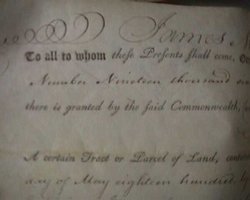 James
To all to whom these Presents shall come, Gr
Number Nineteen thousand
there is granted by the said Commonwealth,
A certain Tract or Parcel of Land, contai
day of May eighteen hundred